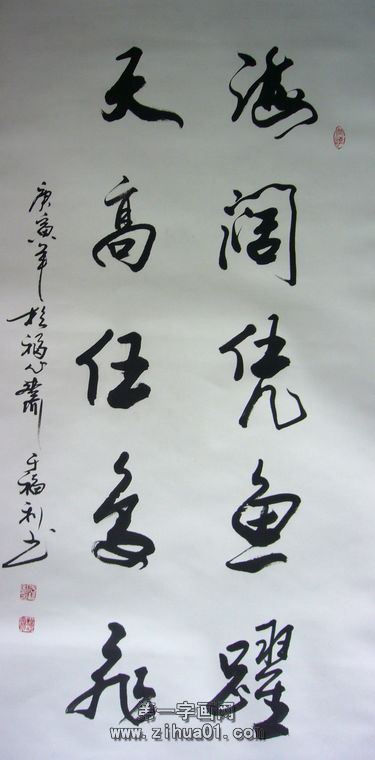 海阔凭鱼躍
天高任鸟飛
庚寅年於福心齋于福利书
第一字画网
www.zihua01.com